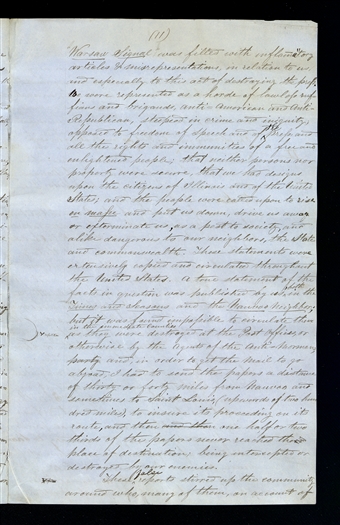 (11)
Warsaw Signal was filled with inflamatory
articles & misrepresentations, in relation to us
and especially to this act of destroying the press.
We were represented as a horde of lawless ruf-
fians and brigands, anti-American and Anti-
Republican, steeped in crime and iniquity,
opposed to freedom of speech and of the press and
all the rights and immunities of a free and
enlightened people; that neither persons nor
property were secure, that we had designs
upon the citizens of Illinois and of the United
States, and the people were called upon to rise
en masse and put us down, drive us away
or exterminate us, as a pest to society, and
alike dangerous to our neighbors, the State,
and commonwealth. These statements were
extensively copied and circulated throughout
the United States. A true statement of the
facts in question was published by us, both in the
Times and Seasons and the Nauvoo Neighbor,
but it was found impossible to circulate them
in the immediate Counties
as they were destroyed at the Post Offices or
otherwise by the agents of the Anti-Mormon
party, and in order to get the mail to go
abroad, I had to send the papers a distance
of thirty or forty miles from Nauvoo and
sometimes to Saint Louis, upwards of two hun-
dred miles, to insure its proceeding on its
route, and then one half or two
thirds of the papers never reached the
place of destination, being intercepted or
destroyed by our enemies.
These false reports stirred up the community
around who, many of them, on account of